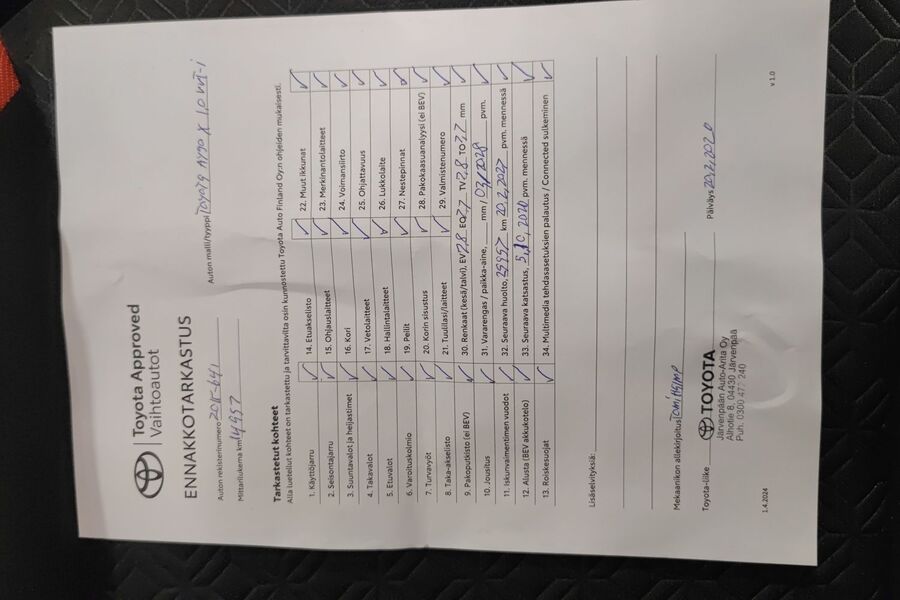 Toyota Approved
Vaihtoautot
ENNAKKOTARKASTUS
Auton rekisterinumero
Auton malli/tyyppi Toyota Aygo X 1,0 VVT-i
Mittarilukema km 14957
Tarkastetut kohteet
Alla luetellut kohteet on tarkastettu ja tarvittavilta osin kunnostettu Toyota Auto Finland Oy:n ohjeiden mukaisesti.
1. Käyttöjarru
2. Seisontajarru
3. Suuntavalot ja heijastimet
4. Takavalot
5. Etuvalot
6. Varoituskolmio
7. Turvavyöt
8. Taka-akselisto
9. Pakoputkisto (ei BEV)
10. Jousitus
11. Iskunvaimentimen vuodot
12. Alusta (BEV akkukotelo)
13. Roiskesuojat
14. Etuakselisto
15. Ohjauslaitteet
16. Kori
17. Vetolaitteet
18. Hallintalaitteet
19. Peilit
20. Korin sisustus
21. Tuulilasi/laitteet
22. Muut ikkunat
23. Merkinantolaitteet
24. Voimansiirto
25. Ohjattavuus
26. Lukkolaite
27. Nestepinnat
28. Pakokaasuanalyysi (ei BEV)
29. Valmistenumero
30. Renkaat (kesä/talvi), EV 7,8 EO 7,7 TV 7,8 TO 7,7 mm
31. Vararengas / paikka-aine, mm / 03/2028 pvm.
32. Seuraava huolto, 29957 km 20.2.2027 pvm. mennessä
33. Seuraava katsastus, pvm. mennessä
34. Multimedia tehdasasetuksien palautus / Connected sulkeminen
Lisäselvityksiä:
Mekaanikon allekirjoitus
Toyota-liike TOYOTA
Järvenpään Auto-Arita Oy
Alhotie 8, 04430 Järvenpää
Puh. 0300 472 240
Päiväys
1.4.2024
v 1.0